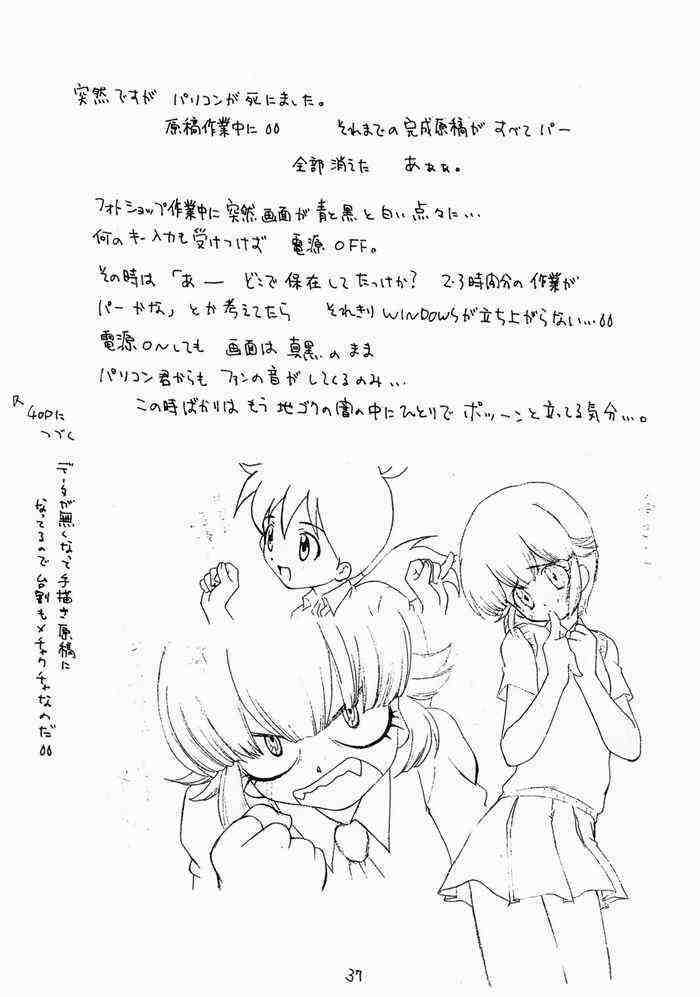 突然ですが パソコンが死にました。
原稿作業中に それまでの完成原稿が すべて パー
全部 消えた あぁぁ。
フォトショップ作業中に 突然 画面が 青と黒と白い点々に…
何のキー入力も受けつけず 電源 OFF。
その時は 「あ― どこで保存してたっけか? 2・3時間分の作業が
パーかな」 とか 考えてたら それきり WINDOWSが立ち上がらない…
電源ONしても 画面は 真黒のまま
パソコン君からも ファンの音が してくるのみ…
この時ばかりは もう 地ゴクの闇の中に ひとりで ポツーンと立ってる気分…。
40Pに
つづく
データが無くなって手描き原稿に
なってるので台割もメチャクチャなのだ
37